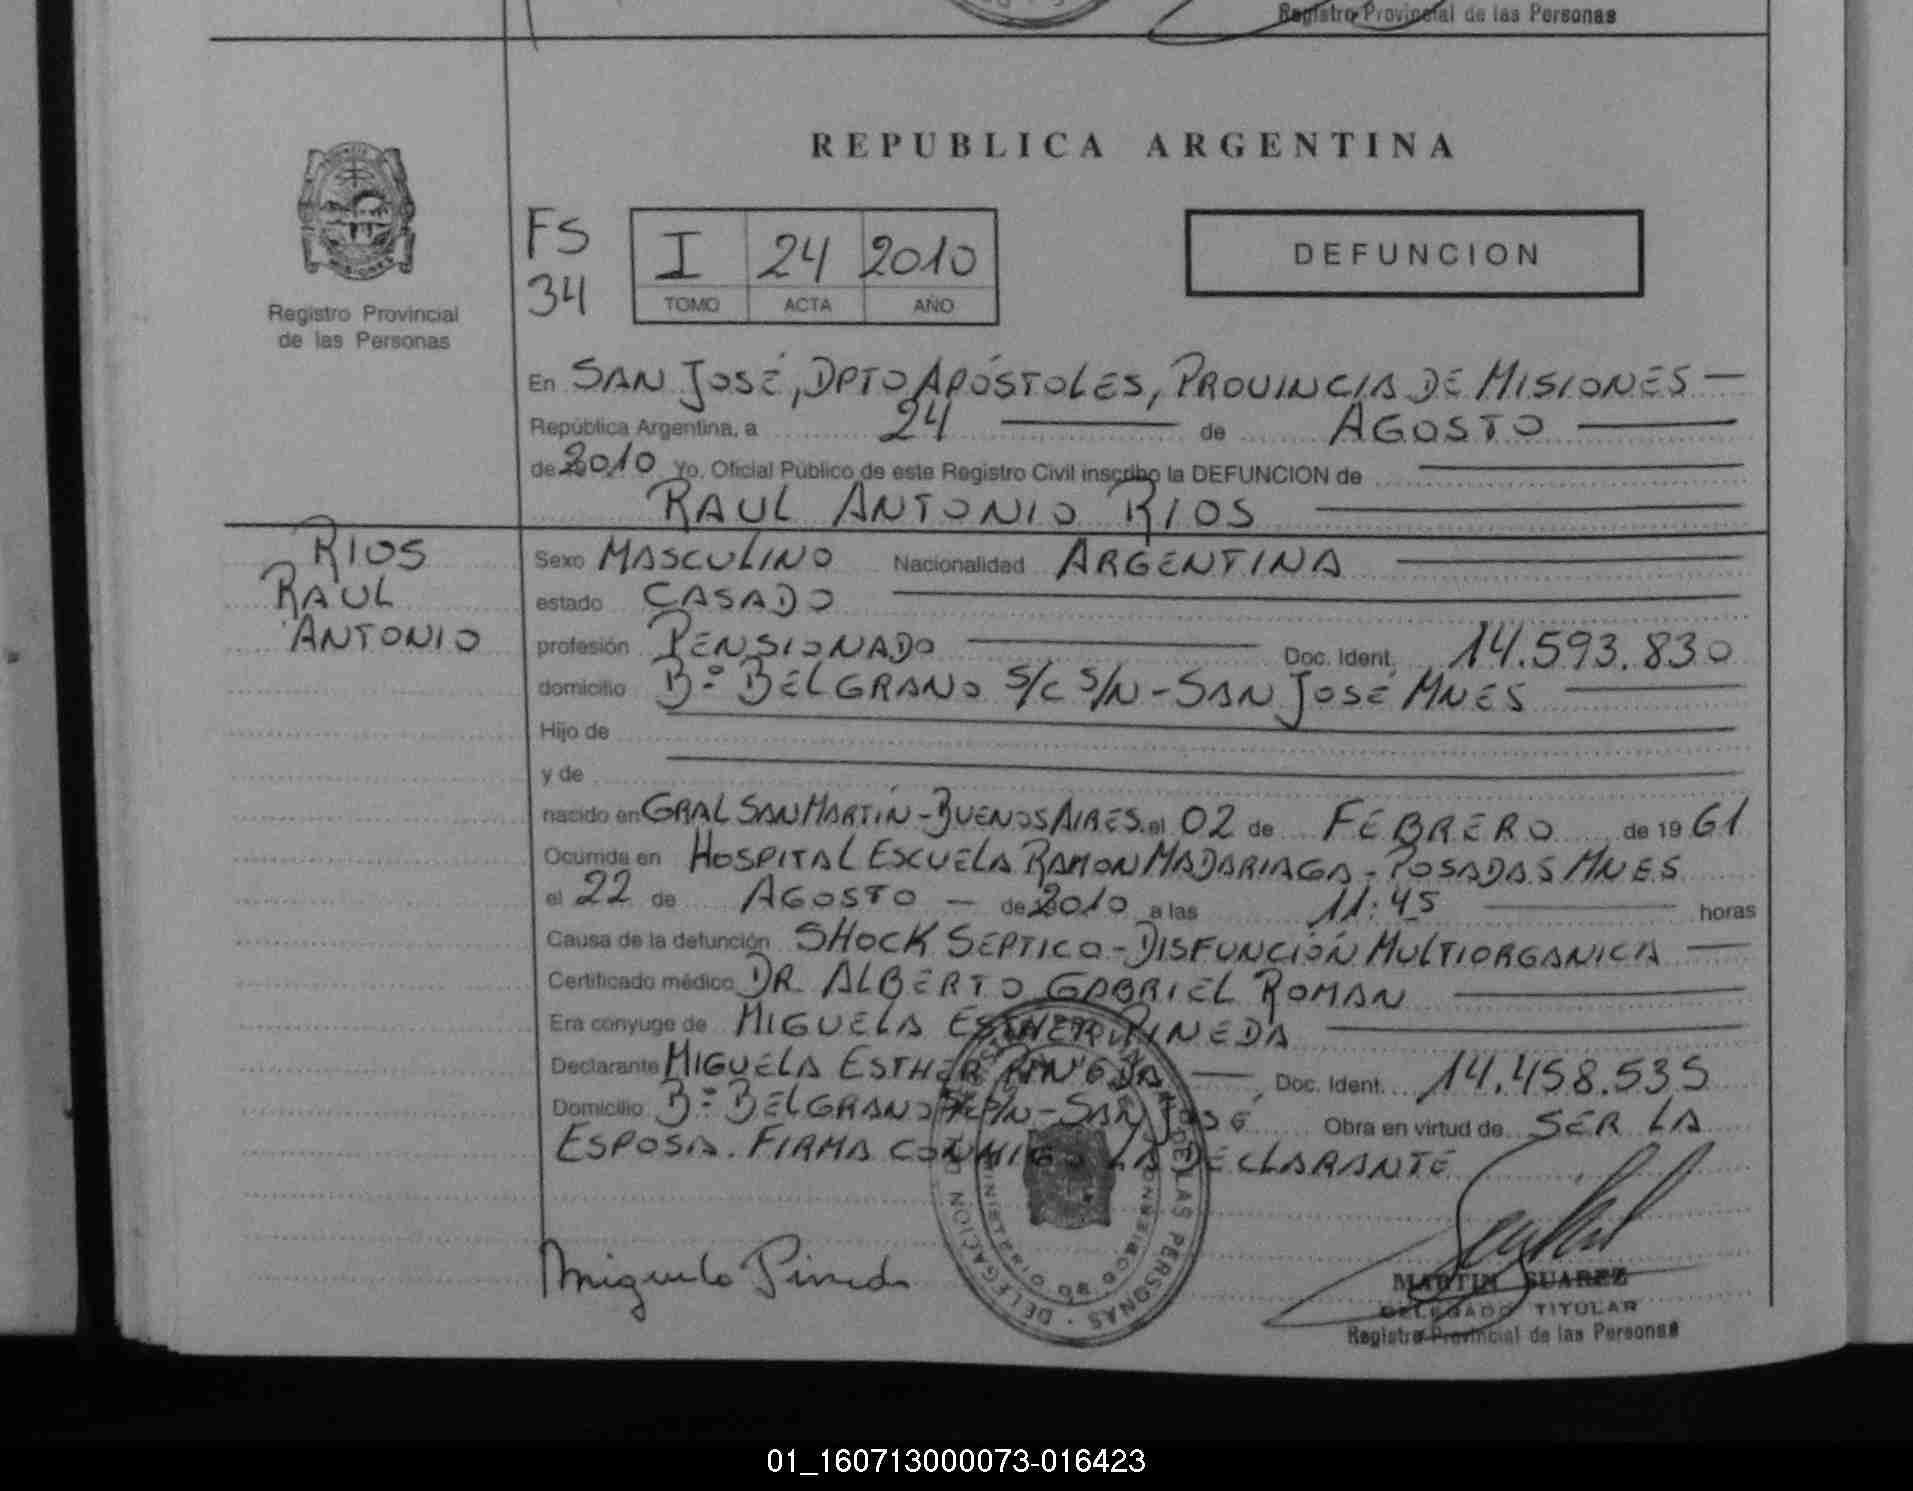 Registro Provincial de las Personas
REPUBLICA ARGENTINA
FS
34
I 24 2010
TOMO ACTA AÑO
DEFUNCION
MISIONES
Registro Provincial
de las Personas
En SAN JOSÉ, DPTO APÓSTOLES, PROVINCIA DE MISIONES —
República Argentina, a 24 — de AGOSTO —
de 2010 Yo, Oficial Público de este Registro Civil inscribo la DEFUNCION de —
RAUL ANTONIO RIOS —
RIOS
RAUL
ANTONIO
Sexo MASCULINO Nacionalidad ARGENTINA —
estado CASADO —
profesión PENSIONADO — Doc. Ident. 14.593.830
domicilio Bº BELGRANO S/C S/N - SAN JOSÉ MNES —
Hijo de —
y de —
nacido en GRAL SAN MARTÍN - BUENOS AIRES el 02 de FEBRERO de 1961
Ocurrida en HOSPITAL ESCUELA RAMON MADARIAGA - POSADAS MNES
el 22 de AGOSTO — de 2010 a las 11:45 — horas
Causa de la defunción SHOCK SEPTICO - DISFUNCIÓN MULTIORGANICA —
Certificado médico DR. ALBERTO GABRIEL ROMAN —
Era conyuge de MIGUELA ESTHER PINEDA —
Declarante MIGUELA ESTHER PINEDA — Doc. Ident. 14.458.535
Domicilio Bº BELGRANO S/C S/N - SAN JOSÉ Obra en virtud de SER LA
ESPOSA. FIRMA CONMIGO LA DECLARANTE
Miguela Pineda
DE LAS PERSONAS · DELEGACION
MINISTERIO DE GOBIERNO
MARTIN SUAREZ
DELEGADO TITULAR
Registro Provincial de las Personas
01_160713000073-016423